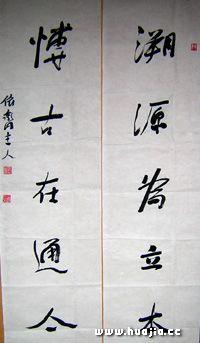 溯源為立本
博古在通今
主人
www.huajia.cc